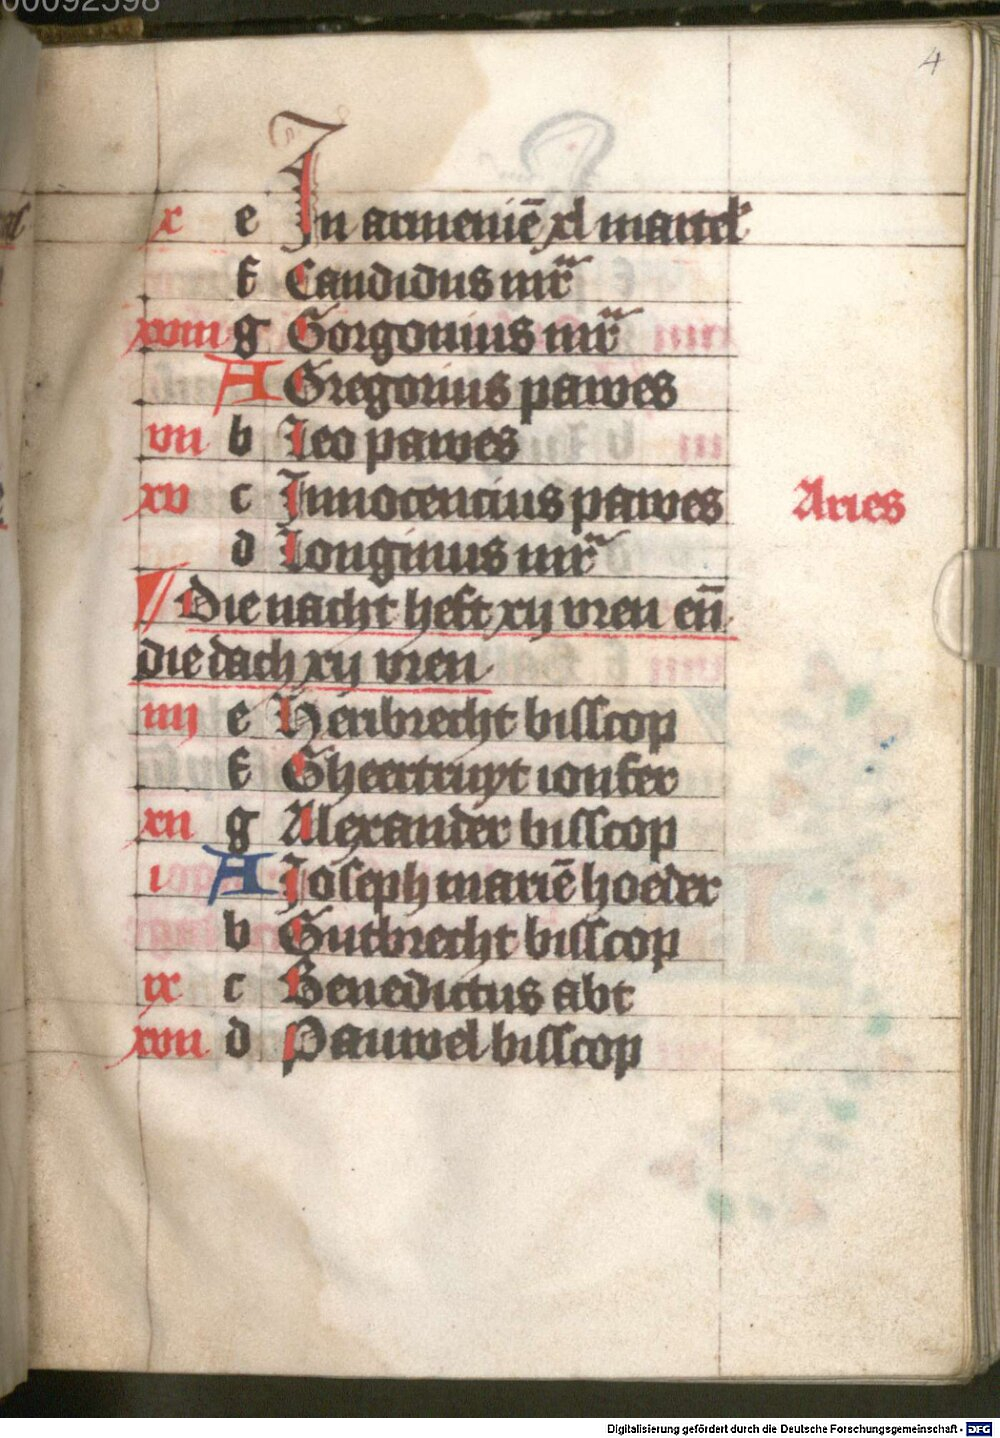 00092598
4
x e In armeniē xl martel᷒
f Candidus mr̄
xviii g Gorgonius mr̄
A Gregorius pawes
vii b Leo pawes
xv c Innocencius pawes
Aries
d Longinus mr̄
Die nacht heft xij vren eñ
die dach xij vren
iiij e Heribrecht bisscop
f Gheertruyt ionfer
xii g Alexander bisscop
i A Joseph mariē hoeder
b Gutbrecht bisscop
ix c Benedictus abt
xvii d Pauwel bisscop
Digitalisierung gefördert durch die Deutsche Forschungsgemeinschaft - DFG